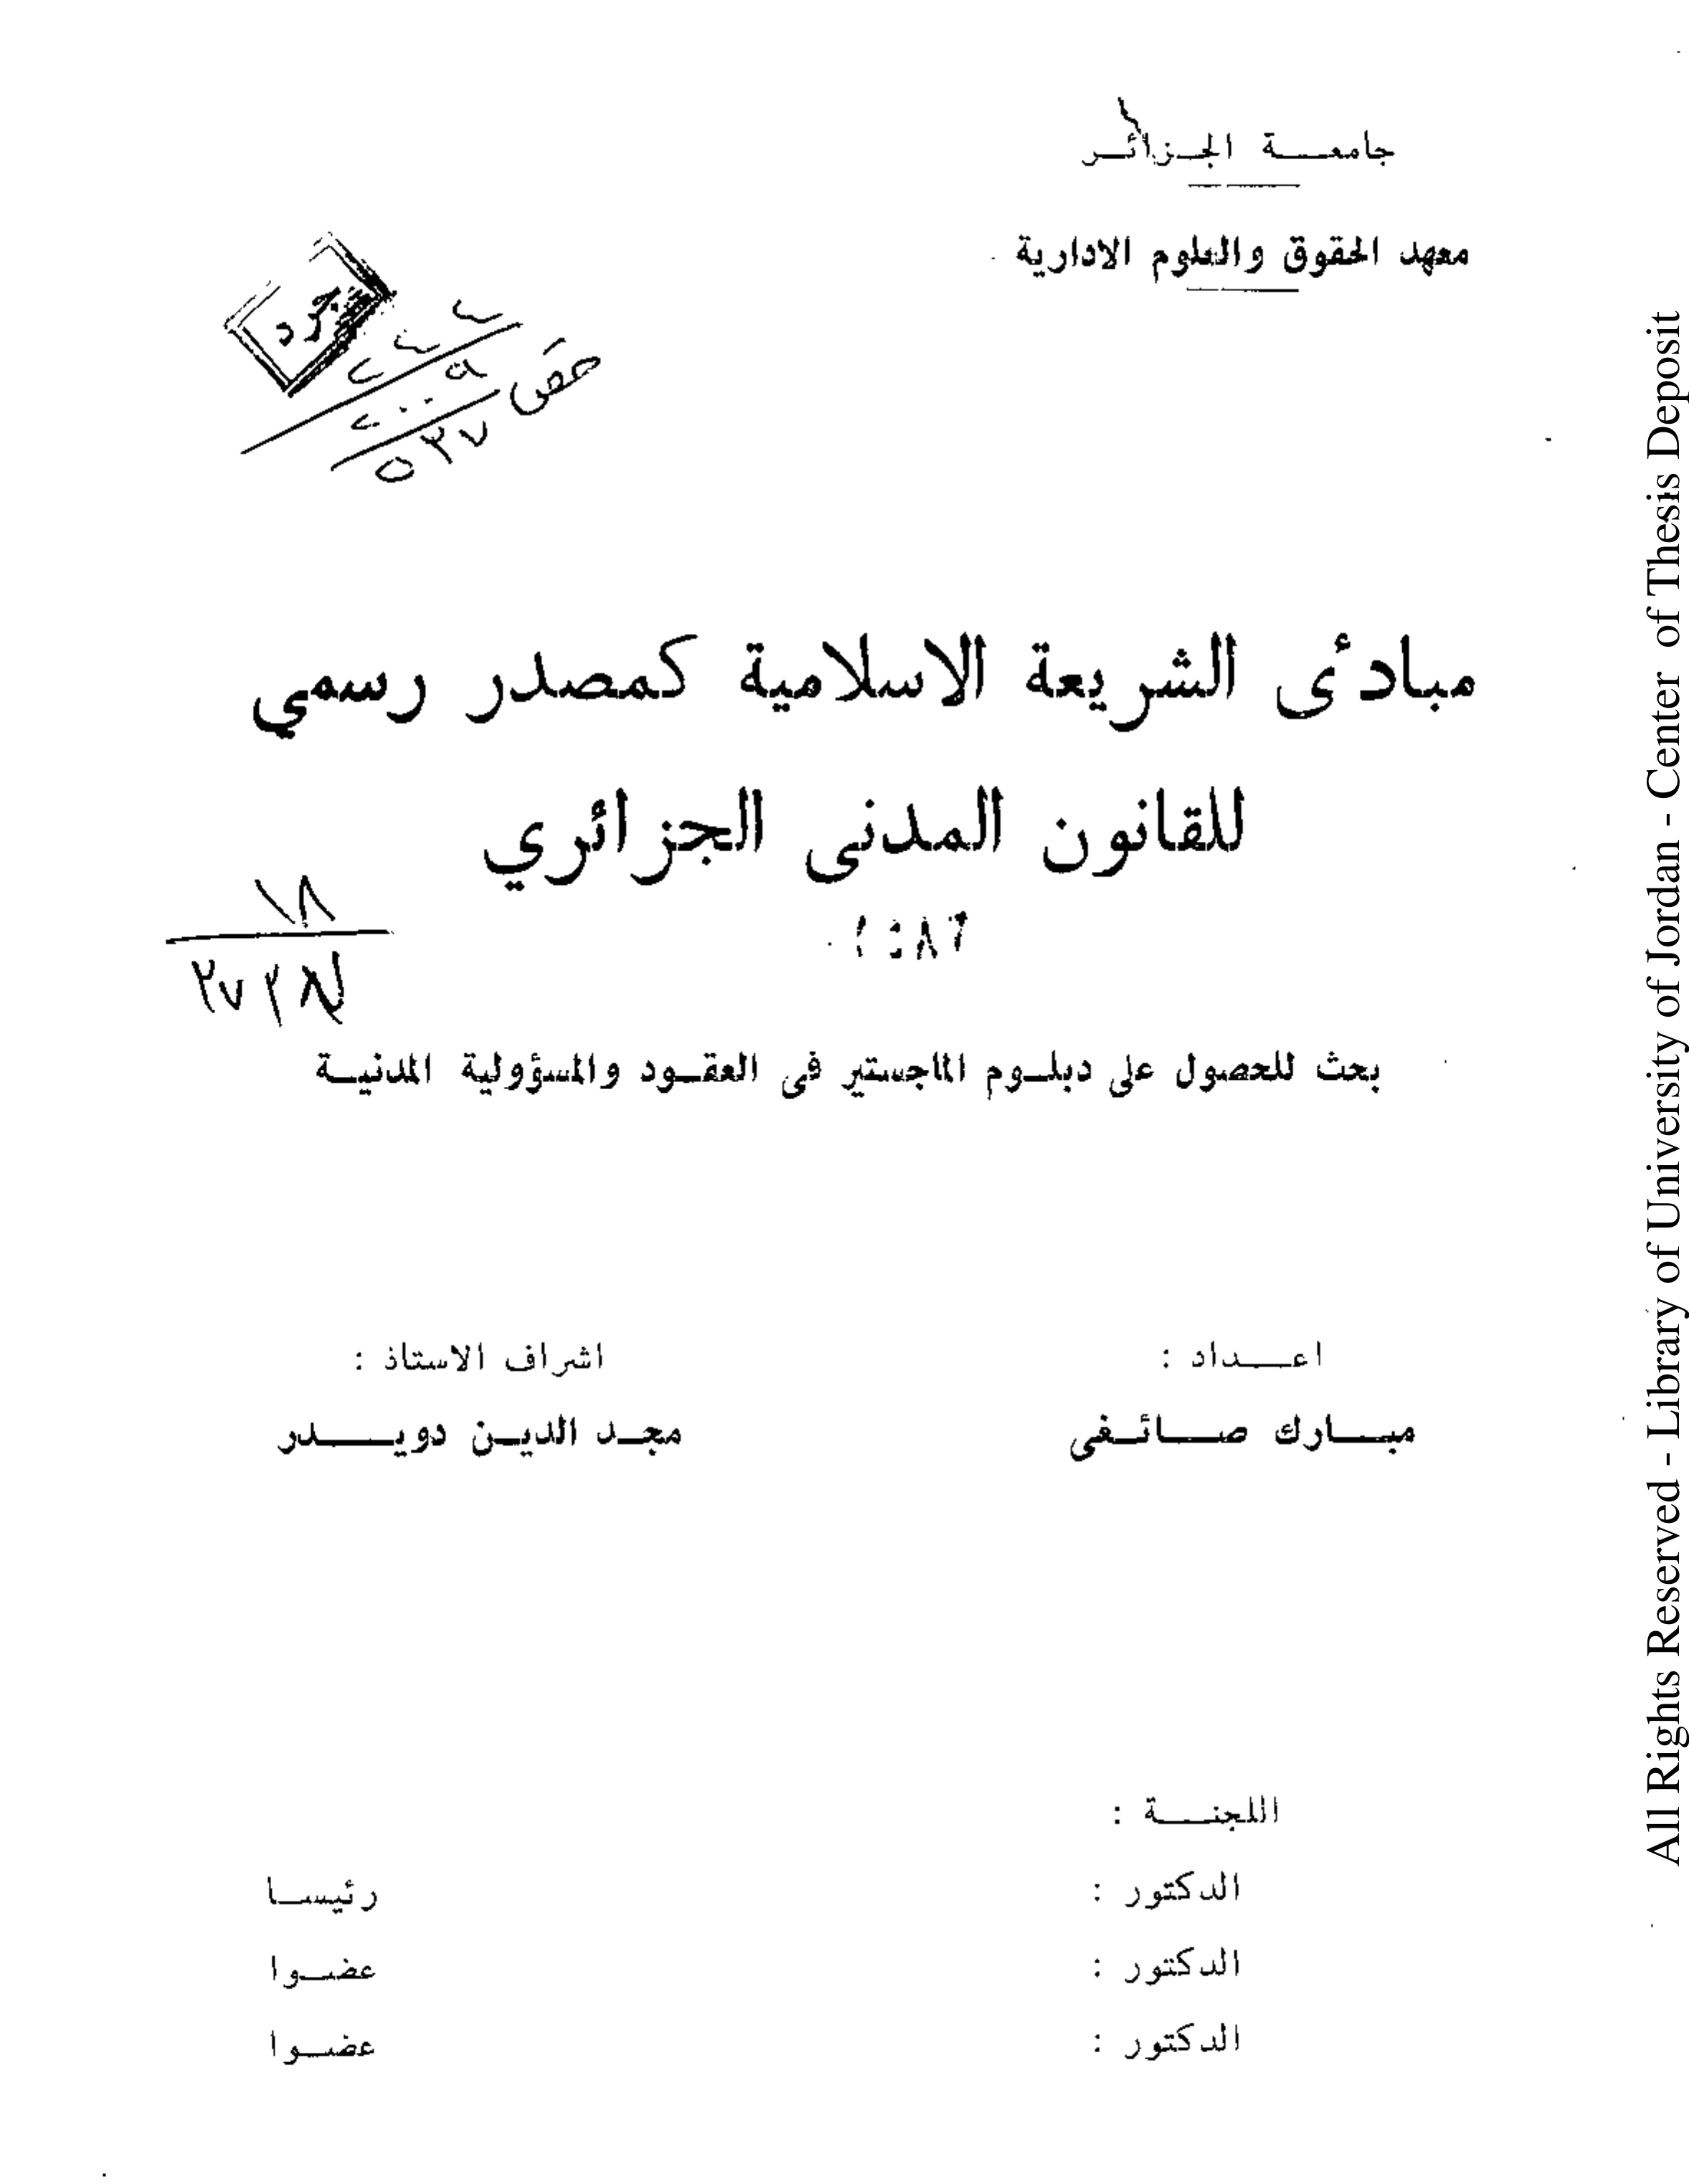 جامعة الجزائر
معهد الحقوق والعلوم الادارية
جرد
مبادئ الشريعة الاسلامية كمصدر رسمي
للقانون المدنى الجزائري
١٨
بحث للحصول على دبلوم الماجستير فى العقود والمسؤولية المدنية
اعداد :
مبارك صائفى
اشراف الاستاذ :
مجد الدين دويدر
اللجنة :
الدكتور : رئيسا
الدكتور : عضوا
الدكتور : عضوا
All Rights Reserved - Library of University of Jordan - Center of Thesis Deposit